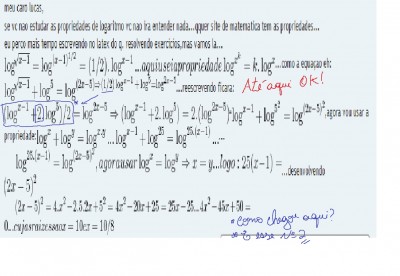 meu caro lucas,
se vc nao estudar as propriedades de logaritmo vc nao ira entender nada...qquer site de matematica tem as propriedades...
eu perco mais tempo escrevendo no latex do q. resolvendo exercicios,mas vamos la...
log^√(x-1) = log^(x-1)^1/2 = (1/2).log^(x-1)...aqui usei a propriedade log^(x^k) = k.log^x...como a equação eh:
log^√(x-1) + log^5 = log^(2x-5) ⇒ (1/2)log^(x-1)+log^5=log^(2x-5)...reescrevendo ficara: Até aqui OK!
(log^(x-1) + 2log^5)/2 = log^(2x-5) ⇒ (log^(x-1) + 2.log^5) = 2.log^(2x-5) log^(x-1) + log^5^2 = log^(2x-5)^2,agora vou usar a
propriedade:log^x + log^y = log^x.y ...log^(x-1) + log^25 = log^25.(x-1)...
log^25.(x-1) = log^(2x-5)^2, agora usar log^x = log^y ⇒ x = y...logo : 25(x-1) = ...desenvolvendo
(2x-5)^2
(2x-5)^2 = 4.x^2-2.5.2x+5^2 = 4x^2-20x+25 = 25x-25...4x^2-45x+50 =
0...cujas raizes sao x = 10 e x = 10/8
• Como chegou aqui?
• E esse nº 2